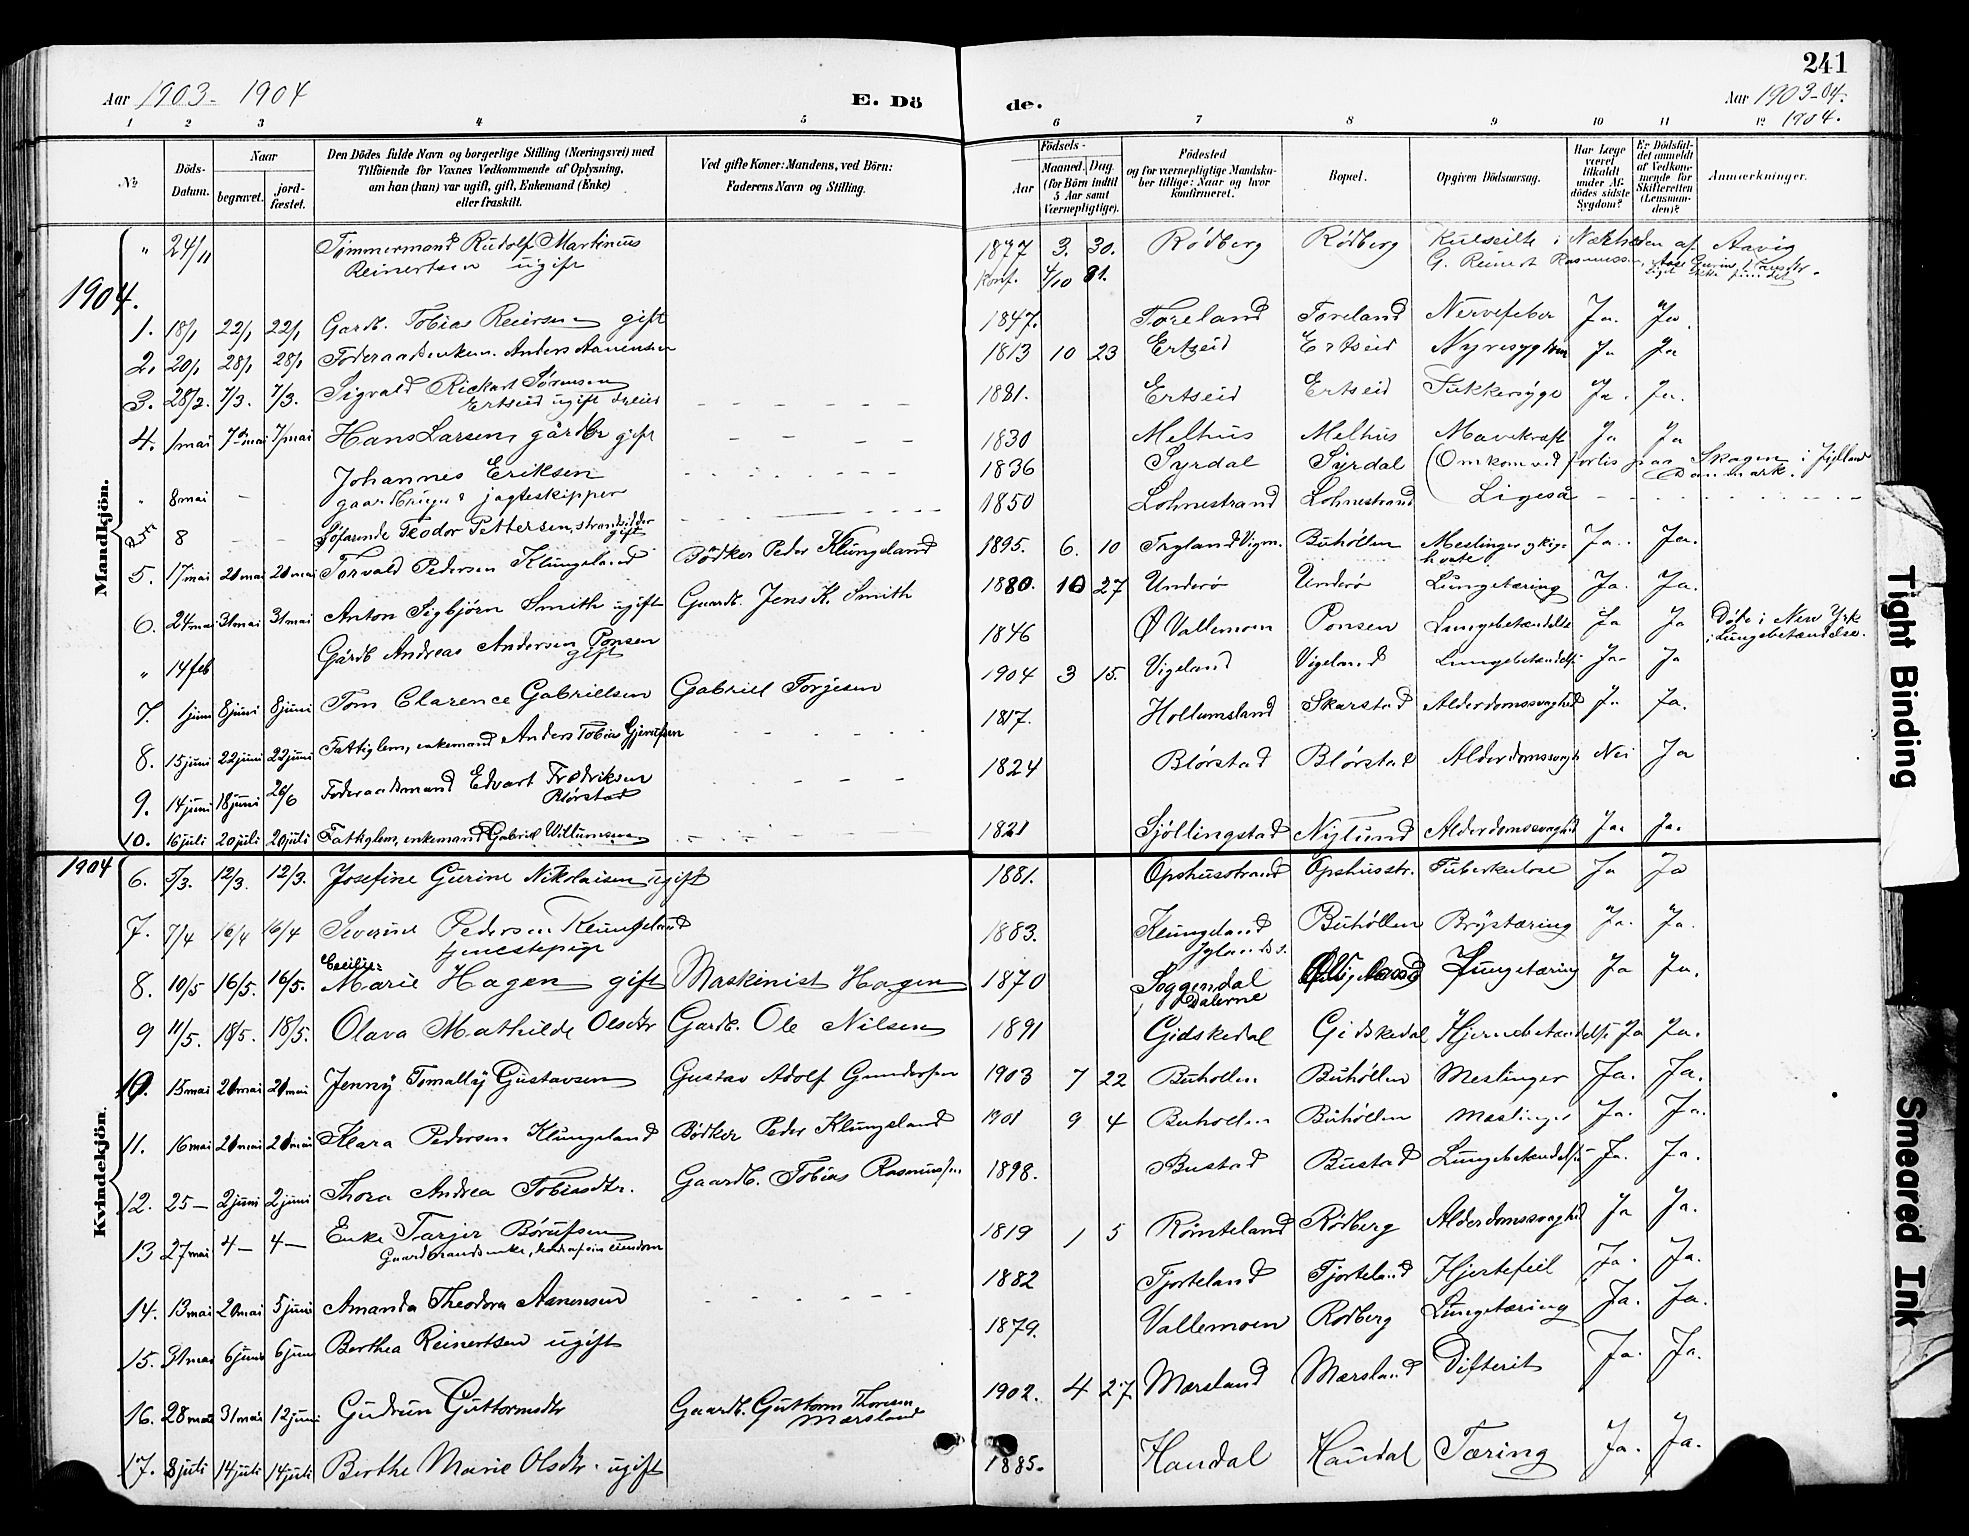 241
Aar 1903-1904
E. Dö
de.
Aar 1903-04.
1904.
1 2 3 4 5 6 7 8 9 10 11 12
No
Döds-Datum.
Naar
begravet.
jord-fæstet.
Den Dödes fulde Navn og borgerlige Stilling (Næringsvei) med
Tilföiende for Voxnes Vedkommende af Oplysning,
om han (hun) var ugift, gift, Enkemand (Enke)
eller fraskilt.
Ved gifte Koner: Mandens, ved Börn:
Faderens Navn og Stilling.
Födsels-
Aar
Maaned. Dag.
(for Börn indtil
5 Aar samt
Værnepligtige).
Födested
og for værnepligtige Mandskaber tillige: Naar og hvor konfirmeret.
Bopæl.
Opgiven Dödsaarsag.
Har Læge været tilkaldt under Afdödes sidste Sygdom?
Er Dödsfaldet anmeldt af Vedkommende for Skifteretten (Lensmanden)?
Anmærkninger.
Mandkjön.
" 24/11 Tömmermand Rudolf Martinius Reinertsen ugift 1877 3. 30. Rödberg Rödberg i Nærheden af Aavig
Konf. 4/10 91. G. Reinert Rasmussen
1904.
1. 18/1 22/1 22/1 Gardb. Tobias Reiersen gift 1847. Foreland Foreland Nervefeber Ja. Ja.
2. 20/1 28/1 28/1 Anders Aanensen 1813 10 23 Ertseid Ertseid Nyresygdom Ja Ja
3. 28/2. 7/3. 7/3. Sigvald Rickart Sörensen Ertseid ugift 1881. Ertseid Ertseid Sukkersyge Ja. Ja.
4. 1 mai 7 mai 7 mai Hans Larsen, gårdbr gift 1830 Melhus Melhus Mavekraft Ja Ja
" 8 mai Johannes Eriksen gaardbruger & jagteskipper 1836 Syrdal Syrdal (Omkom ved forlis paa Skagen i Jylland Danmark.
8 Söfarende Teodor Pettersen, strandsidder gift 1850 Lohnestrand Lohnestrand Ligeså
5. 17 mai 20 mai 20 mai Torvald Pedersen Klungeland Bödker Peder Klungeland 1895. 6. 10 Buhöllen Meslinger Ja. Ja.
6. 24 mai 31 mai 31 mai Anton Sigbjörn Smith ugift Gaardb. Jens K. Smith 1880. 10 27 Underö Underö Lungetæring Ja. Ja.
" 14 feb Gårdb Andreas Andersen Ponsen gift 1846 Ø Vallemoen Ponsen Lungebetændelse Ja Ja Döde i New York i Lungebetændelse.
7. 1 juni 8 juni 8 juni Tom Clarence Gabrielsen Gabriel Torjesen 1904 3 15. Vigeland Vigeland Lungebetændelse Ja Ja
8. 15 juni 22 juni 22 juni Fattiglem, enkemand Anders Tobias 1817. Hollumsland Skarstad Alderdomssvaghed Ja Ja.
9. 14 juni 18 juni 26/6 Föderaadsmand Edvart Fredriksen Blörstad 1824 Blörstad Blörstad Alderdomssvagh Nei Ja
10. 16 juli 20 juli 20 juli Fattiglem, enkemand Gabriel Willumsen 1821 Sjöllingstad Niglund Alderdomssvaghed Ja. Ja.
1904
Kvindekjön.
6. 5/3. 12/3. 12/3. Josefine Gurine Nikolaisen ugift 1881. Opshusstrand Opshusstr. Tuberkulose Ja Ja
7. 7/4 16/4 16/4 Severine Pedersen Klungeland tjenestepige 1883. Klungeland Buhöllen Brystæring Ja. Ja.
8. 10/5 16/5. 16/5. Cecilie Marie Hagen gift Maskinist Hagen 1870 Soggendal i Dalerne Lungetæring Ja Ja.
9 11/5. 18/5. 18/5. Olava Mathilde Olsdtr Gardb. Ole Nilsen 1891 Gidskedal Gidskedal Hjernebetændelse Ja Ja.
10. 15 mai 20 mai 20 mai Jenny Tomally Gustavsen Gustav Adolf Gundersen 1903 7 22 Buhollen Buhöllen Meslinger Ja. Ja.
11. 16 mai 20 mai 20 mai Klara Pedersen Klungeland Bödker Peder Klungeland 1901 9 4 Buhollen Buhöllen Meslinger Ja. Ja.
12. 25 - 2 juni 2 juni Thora Andrea Tobiasdtr. Gaardb. Tobias Rasmussen 1898. Bustad Bustad Lungebetændelse Ja. Ja.
13 27 mai 4 - 4 - Enke Tarjer Börufsen Gaardmandsenke, 1819 1 5 Römteland Rödberg Alderdomssvaghed Ja Ja.
14. 13 mai 20 mai 5 juni Amanda Theodora Aanensen 1882 Fjorteland Fjorteland Hjertefeil Ja. Ja.
15. 31 mai 6 juni 6 juni Berthea Reinertsen ugift 1879. Vallemoen Rödberg Lungetæring Ja. Ja.
16. 28 mai 31 mai 12 juni Gudrun Guttormsdtr Gaardb. Guttorm Thorsen Mærsland 1902. 4 27. Mærsland Mærsland Difterit Ja. Ja.
17. 8 juli 14 juli 14 juli Berthe Marie Olsdtr. ugift 1885. Haudal Haudal Tæring Ja. Ja.
Tight Binding
Smeared Ink